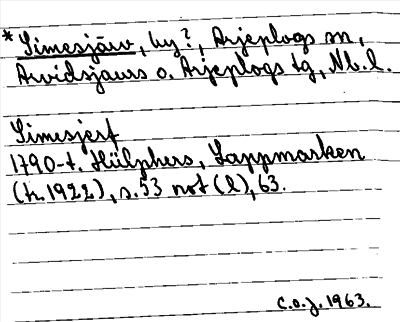 * Simesjärv, by?, Arjeplogs sn,
Arvidsjaurs o. Arjeplogs tg, Nb. l.
Simesjerf
1790-t. Hülphers, Lappmarken
(tr. 1922), s. 53 not (l), 63.
C.O.J. 1963.